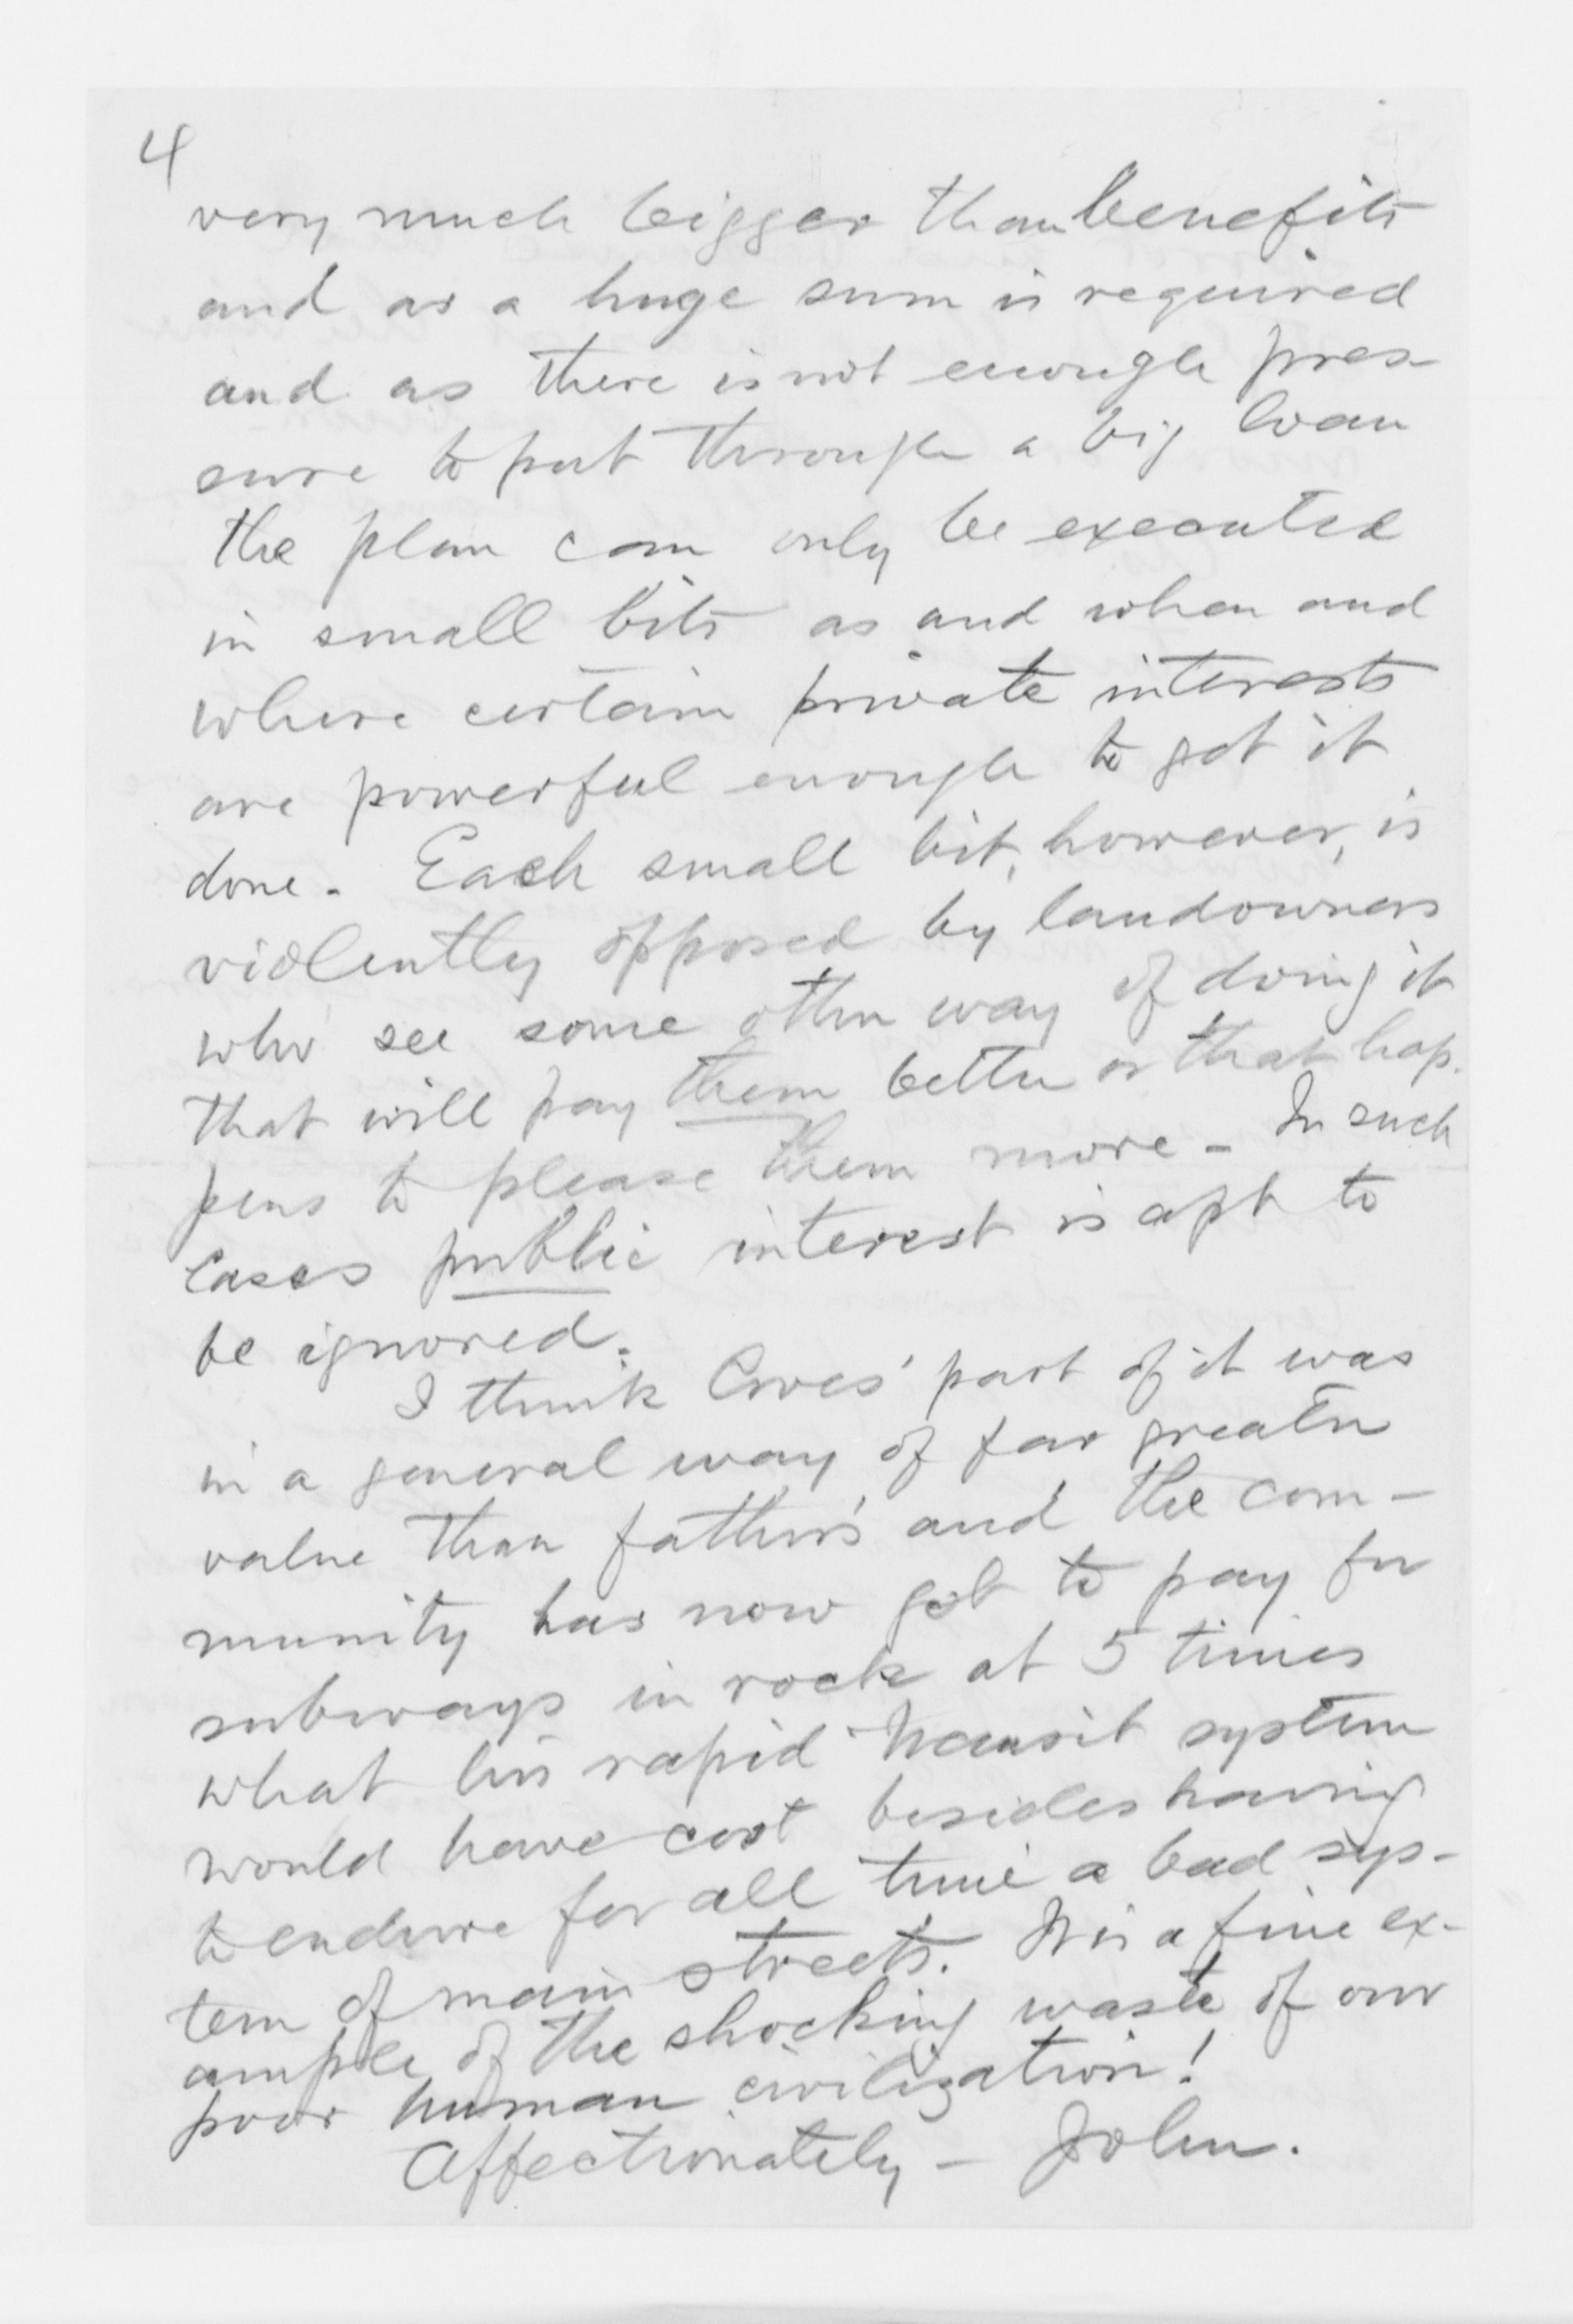 4
very much bigger than benefits
and as a huge sum is required
and as there is not enough pres-
sure to put through a big loan
the plan can only be executed
in small bits as and when and
where certain private interests
are powerful enough to get it
done. Each small bit, however, is
violently opposed by landowners
who see some other way of doing it
that will pay them better or that hap-
pens to please them more - In such
cases public interest is apt to
be ignored.
I think Croes' part of it was
in a general way of far greater
value than father's and the com-
munity has now got to pay for
subways in rock at 5 times
what his rapid transit system
would have cost besides having
to endure for all time a bad sys-
tem of main streets. It is a fine ex-
ample of the shocking waste of our
poor human civilization!
Affectionately - John.